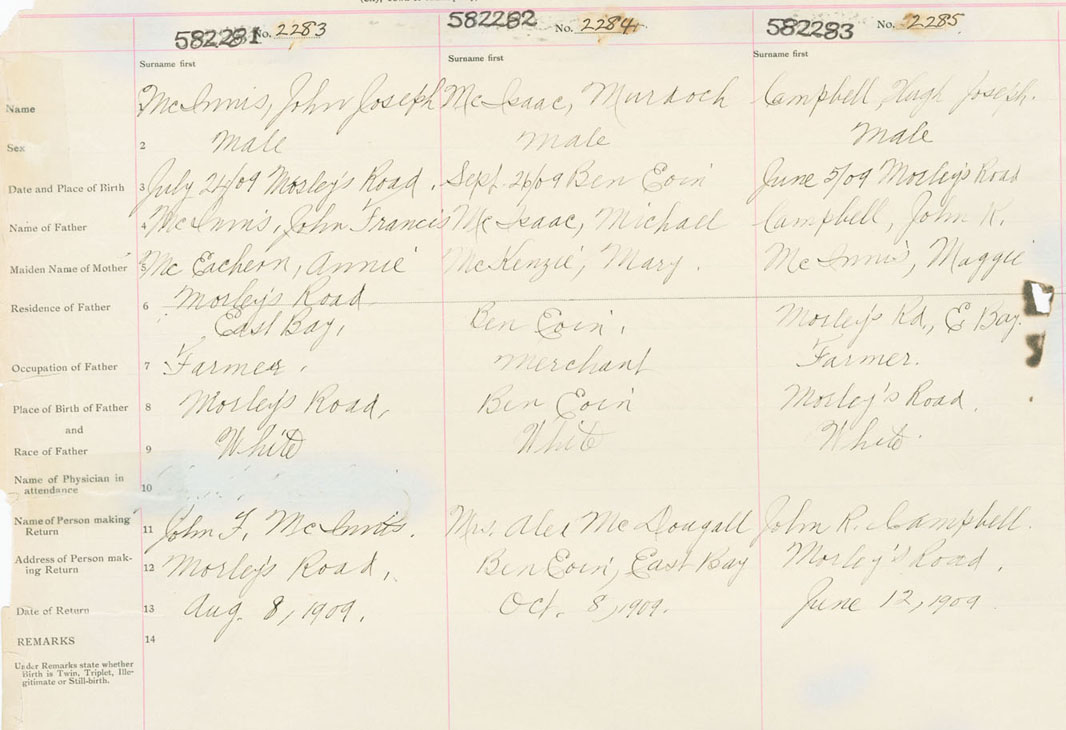 582281 No. 2283 582282 No. 2284 582283 No. 2285
Surname first Surname first Surname first
Name 1 McInnis, John Joseph McIsaac, Murdoch Campbell, Hugh Joseph.
Sex 2 Male Male Male
Date and Place of Birth 3 July 24/09 Mosley's Road. Sept. 26/09 Ben Eoin June 5/09 Morley's Road
Name of Father 4 McInnis, John Francis McIsaac, Michael Campbell, John R.
Maiden Name of Mother 5 McEachern, Annie McKenzie, Mary. McInnis, Maggie
Residence of Father 6 Morley's Road
East Bay, Ben Eoin. Morley's Rd., E. Bay.
Occupation of Father 7 Farmer. Merchant Farmer.
Place of Birth of Father 8 Morley's Road, Ben Eoin Morley's Road.
and
Race of Father 9 White White White
Name of Physician in
attendance 10
Name of Person making
Return 11 John F. McInnis. Mrs. Alex McDougall John R. Campbell.
Address of Person mak-
ing Return 12 Morley's Road, Ben Eoin, East Bay Morley's Road.
Date of Return 13 Aug. 8, 1909. Oct. 8, 1909. June 12, 1909
REMARKS 14
Under Remarks state whether
Birth is Twin, Triplet, Ille-
gitimate or Still-birth.